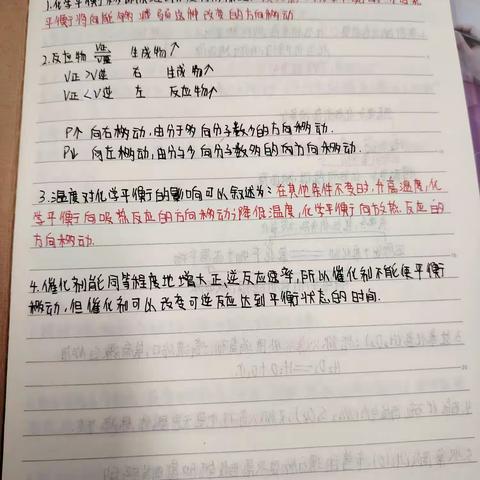 平衡将向能够减弱这种改变的方向移动
2.反应物 V正/V逆 生成物↑
V正>V逆 右 生成物↑
V正<V逆 左 反应物↑
P↑ 向右移动,由分子多向分子数少的方向移动.
P↓ 向左移动,由分子少向分子数多的方向移动.
3.温度对化学平衡的影响可以叙述为:在其他条件不变时,升高温度,化
学平衡向吸热反应的方向移动;降低温度,化学平衡向放热反应的
方向移动.
4.催化剂能同等程度地增大正,逆反应速率,所以催化剂不能使平衡
移动,但催化剂可以改变可逆反应达到平衡状态的时间.